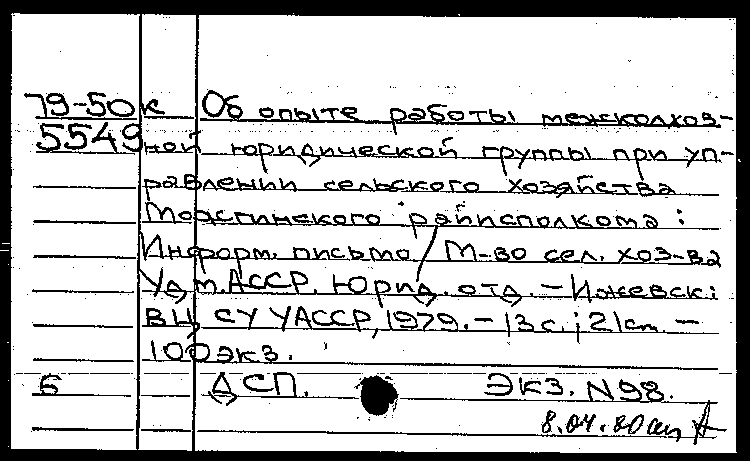 79-50к Об опыте работы межколхоз-
5549 ной юридической группы при уп-
равлении сельского хозяйства
Можгинского райисполкома:
Информ. письмо / М-во сел. хоз-ва
Удм.АССР. Юрид. отд. - Ижевск:
ВЦ СУ УАССР, 1979. - 13 с.; 21 см. -
100 экз.
Б ДСП. Экз. N98.
8.04.80